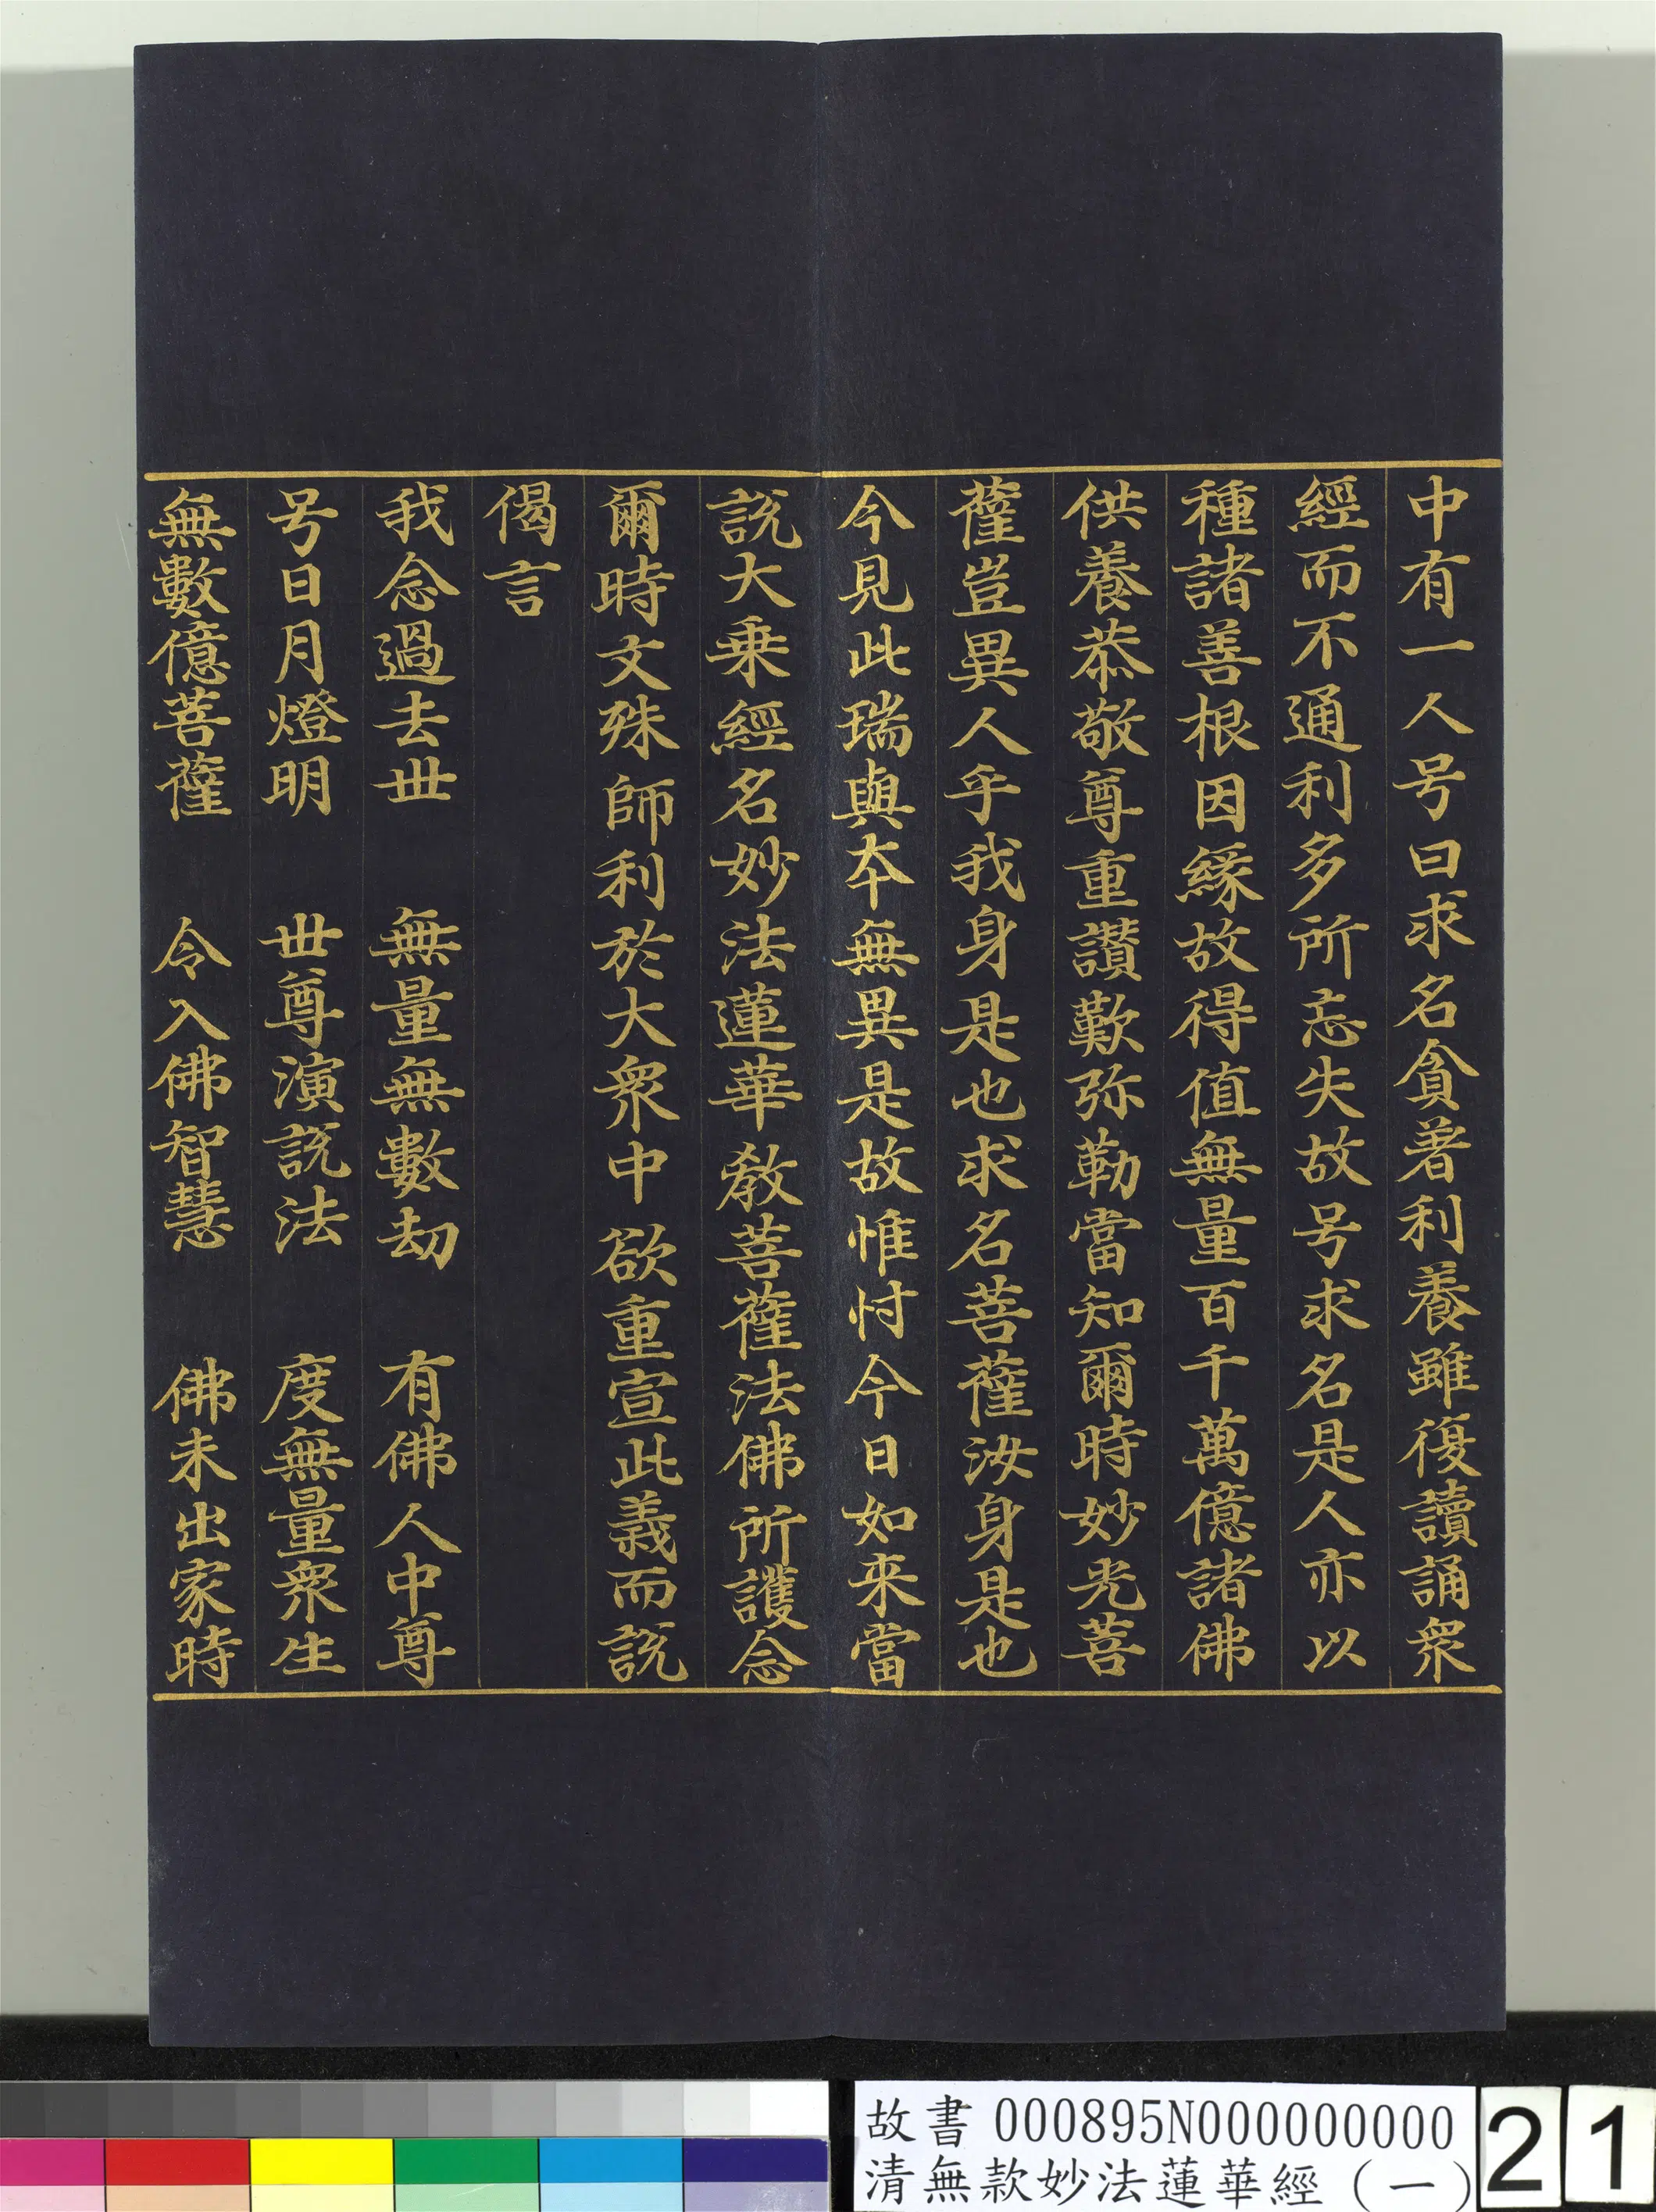 中有一人号曰求名貪著利養雖復讀誦衆
經而不通利多所忘失故号求名是人亦以
種諸善根因緣故得值無量百千萬億諸佛
供養恭敬尊重讚歎弥勒當知爾時妙光菩
薩豈異人乎我身是也求名菩薩汝身是也
今見此瑞與夲無異是故惟忖今日如来當
說大乗經名妙法蓮華教菩薩法佛所護念
爾時文殊師利於大衆中欲重宣此義而說
偈言
我念過去丗　無量無數劫　有佛人中尊
号日月燈明　丗尊演說法　度無量衆生
無數億菩薩　令入佛智慧　佛未出家時
故書 000895N000000000
清無款妙法蓮華經（一）
21